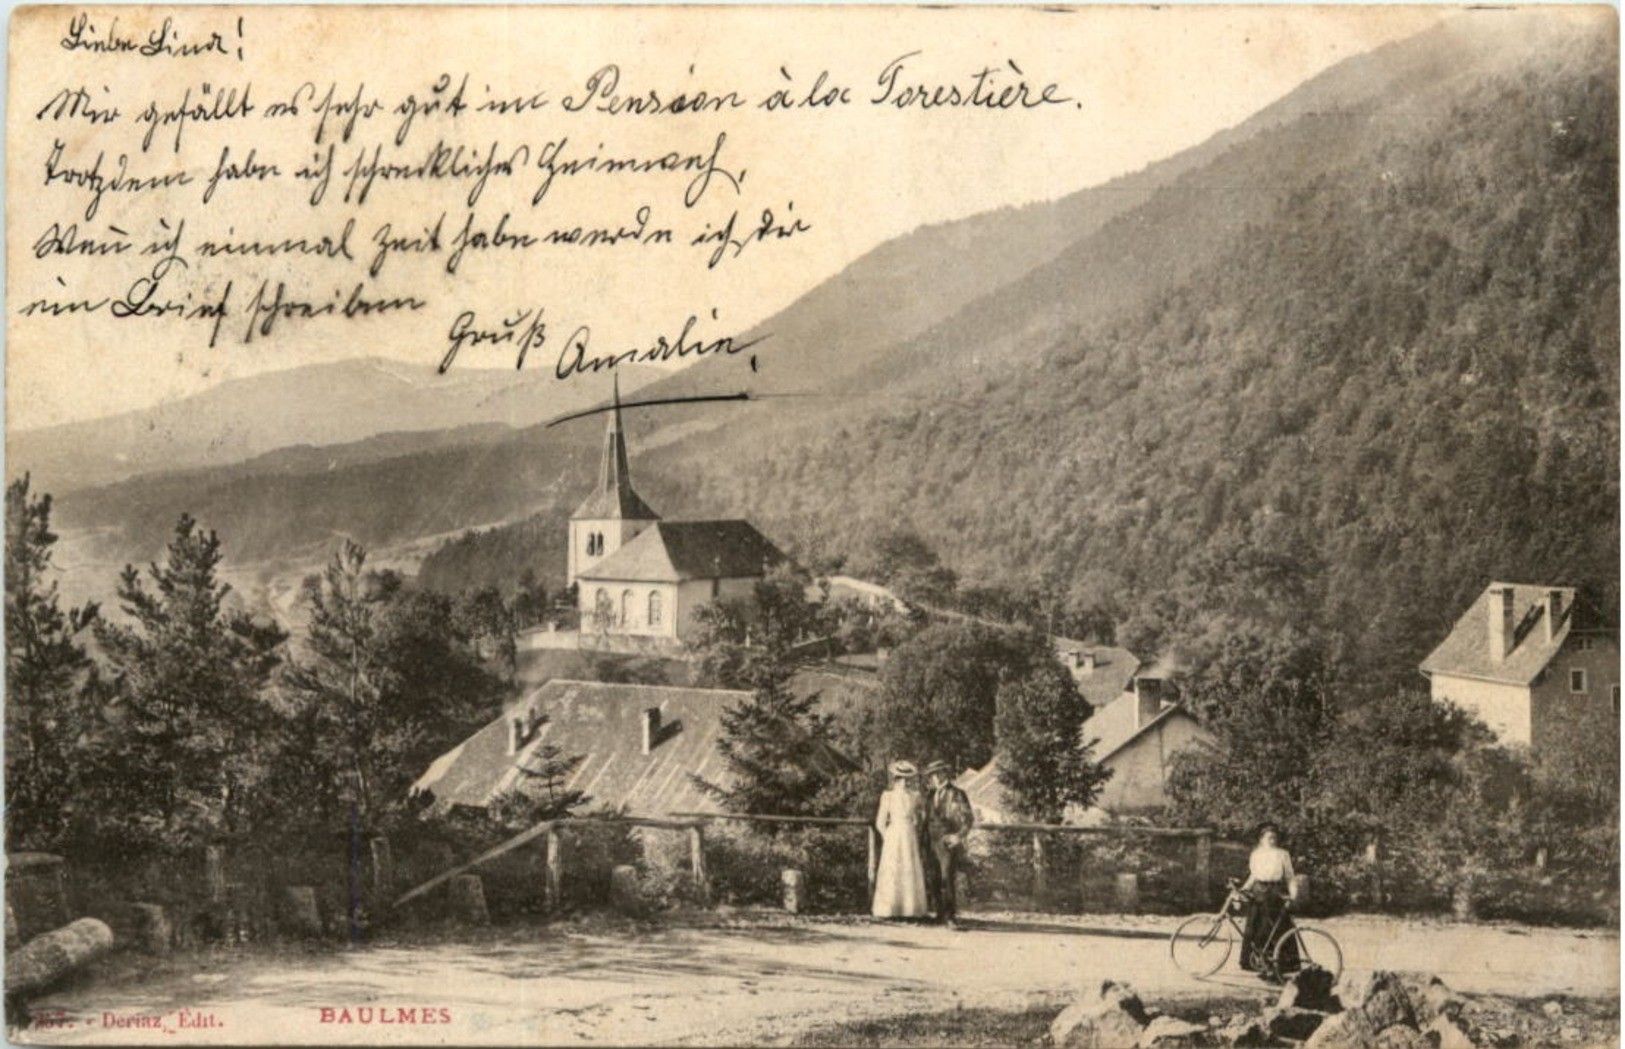 Liebe Lina!
Mir gefällt es sehr gut im Pension à la Forestière.
Trotzdem habe ich schreckliches Heimweh,
Wen̄ ich einmal Zeit habe werde ich Dir
ein Brief schreiben
Gruß Amalie.
- Deriaz, Édit. BAULMES